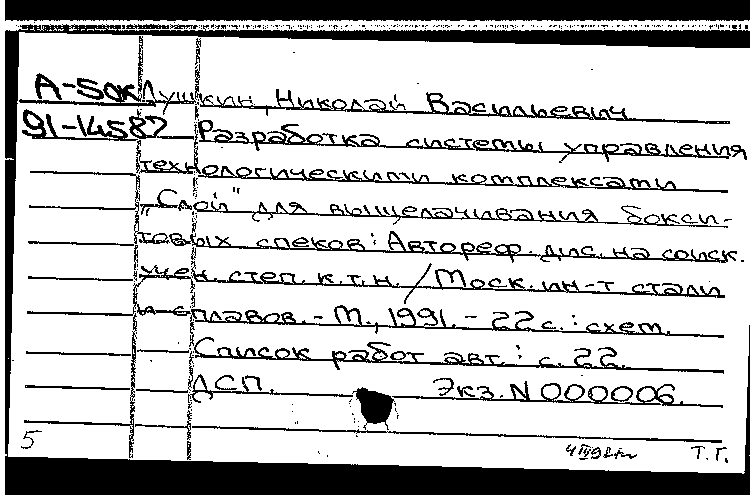 А-50к Лушкин, Николай Васильевич
91-14587 Разработка системы управления
технологическими комплексами
"Слой" для выщелачивания бокси-
товых спеков: Автореф. дис. на соиск.
учен. степ. к.т.н. / Моск. ин-т стали
и сплавов. - М., 1991. - 22 с. : схем.
Список работ авт.: с. 22.
ДСП. Экз. N 000006.
5 Т.Г.